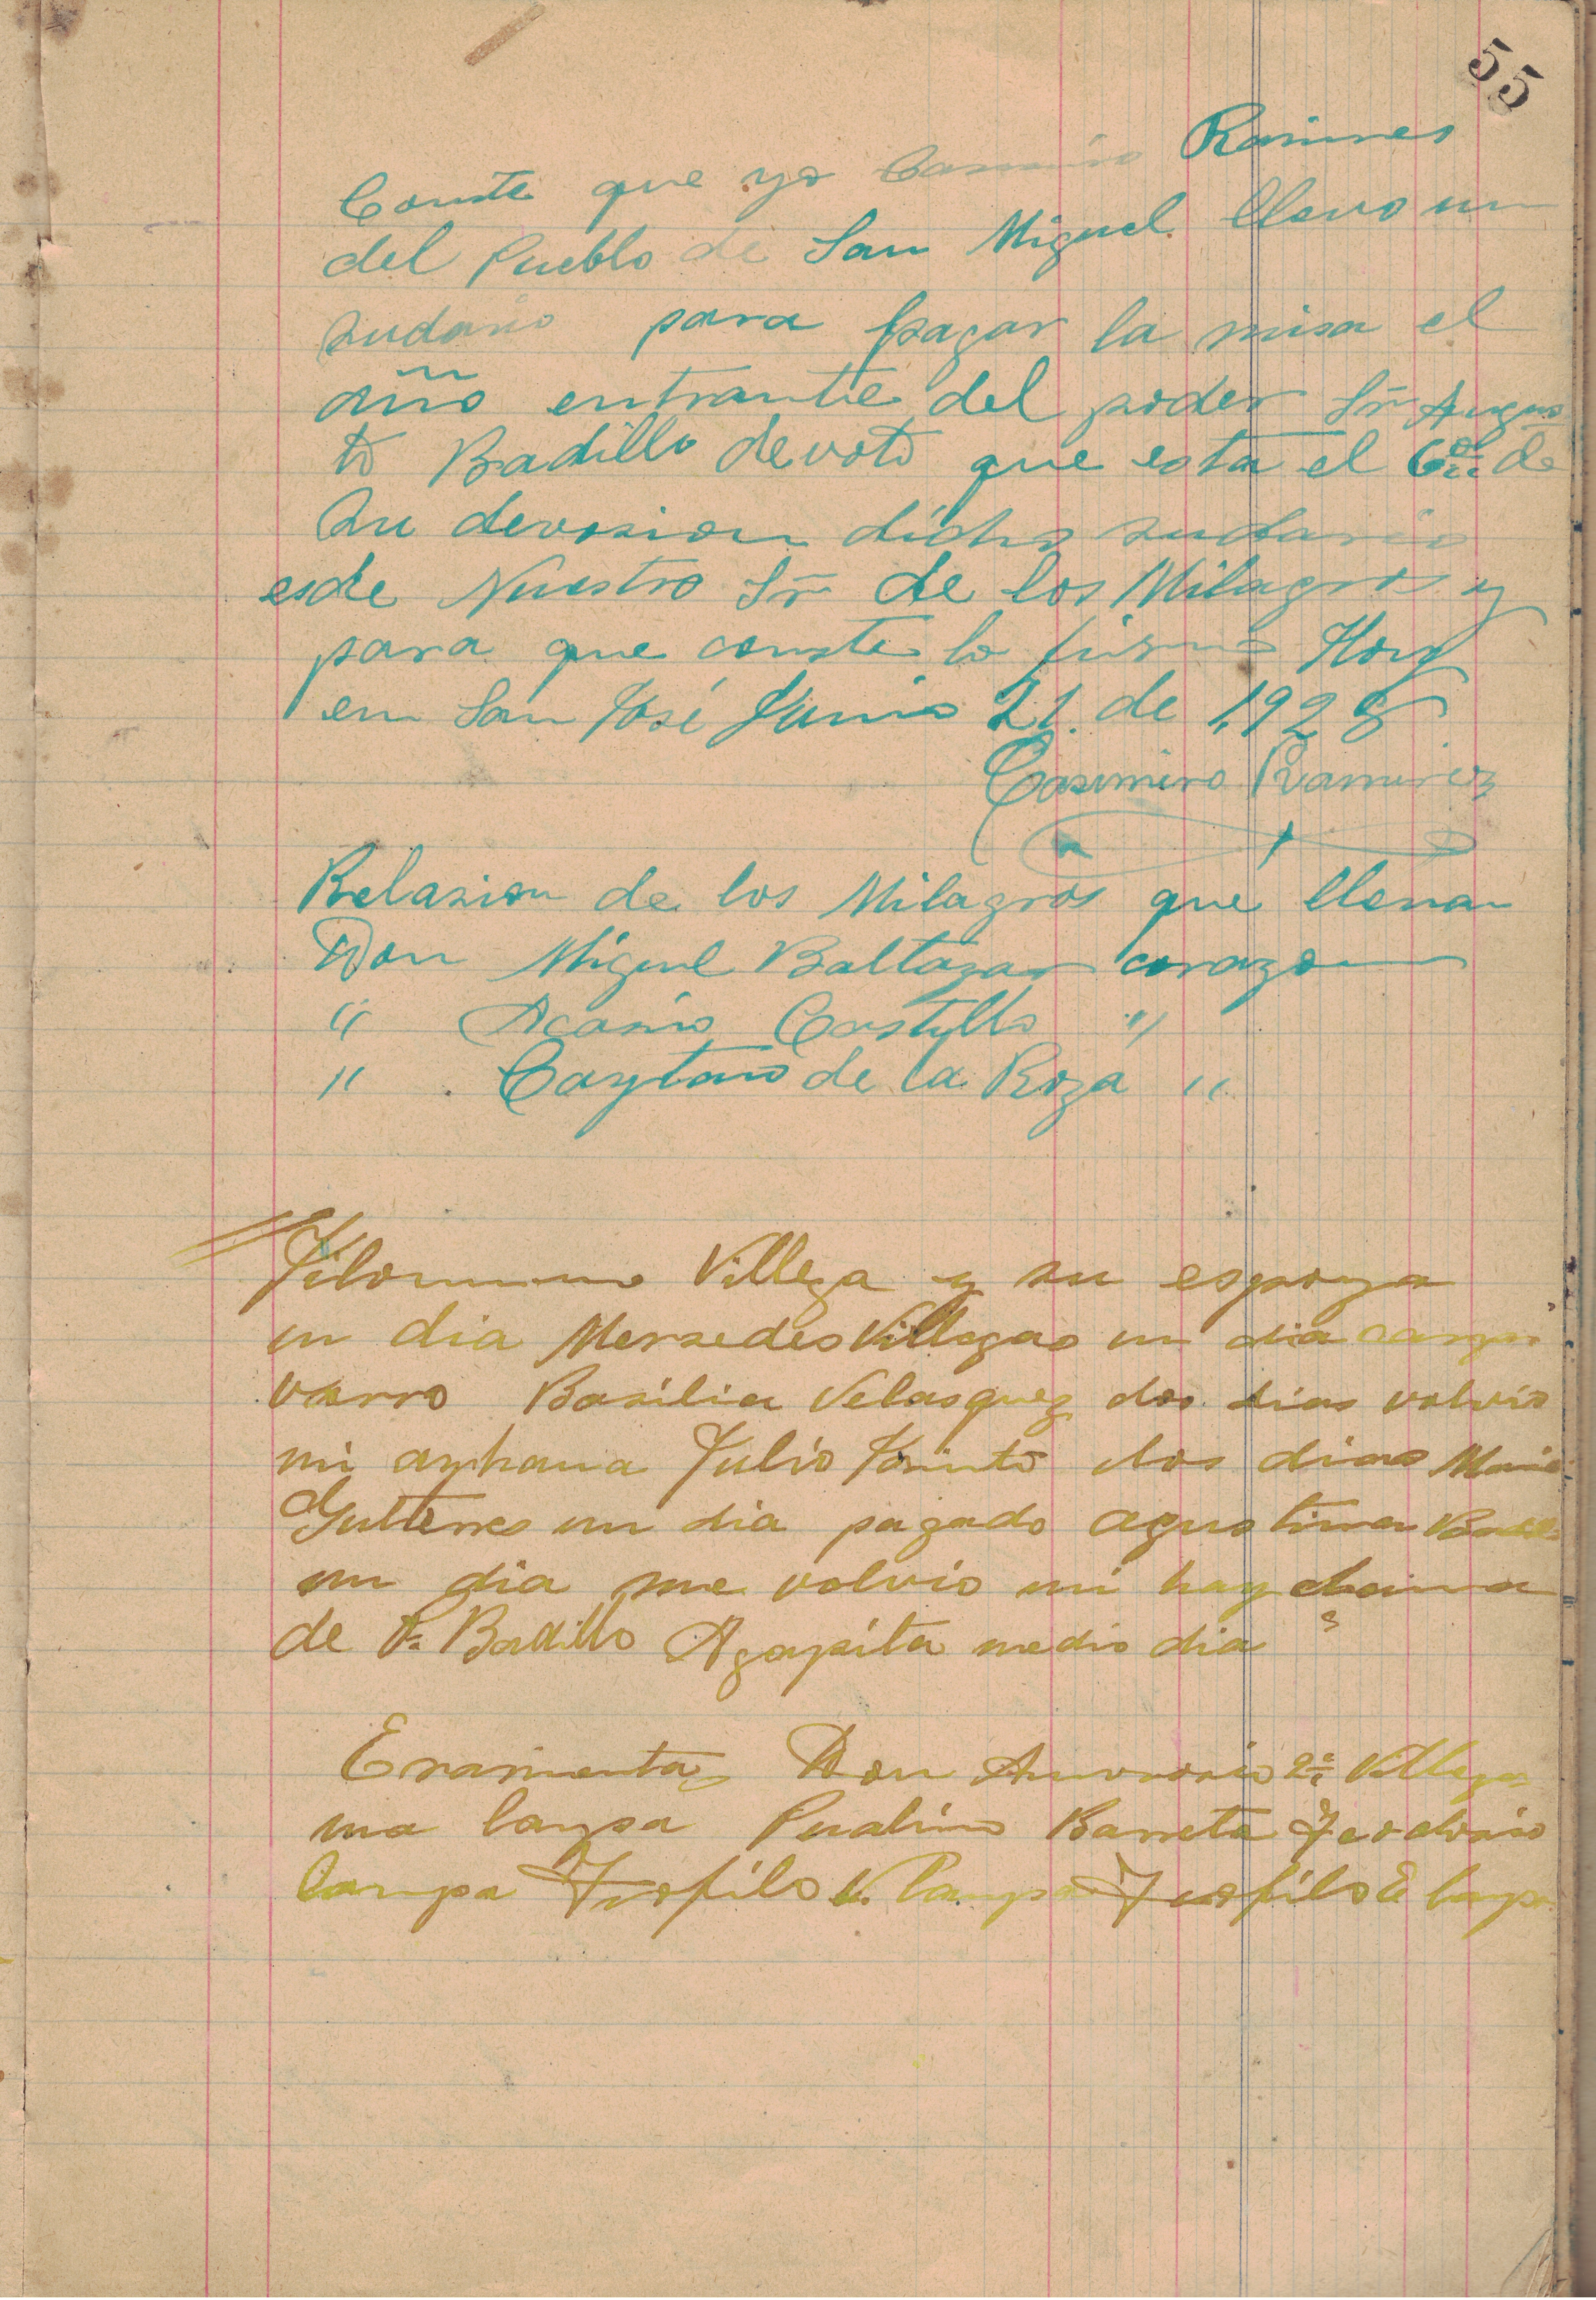 55
Conste que yo Ramires
del Pueblo de San Miguel llevo un
sudario para pagar la misa el
año entrante del poder Sr Augus
to Badillo devoto que esta el 6º de
su devosion dicho sudario
esde Nuestro Sr de los Milagros y
para que conste lo firmo Hoy
en San José Junio 21 de 1928
Casimiro Ramirez
Relasion de los Milagros que llevan
Don Miguel Baltazar corazon
" Acasio Castyllo "
" Caytano de la Roza "
Villega y su espoza
un dia Mersedes Villegas un dia
Basilia Velasquez dos dias volvio
mi Julio Jasinto dos dias
Gutierres un dia pagado agustina
un dia me volvio mi
de Badillo Agapita medio dia
Don 2º Villegas
una lampa Barreta
lampa Teofilo V. lampa Teofilo E lampa